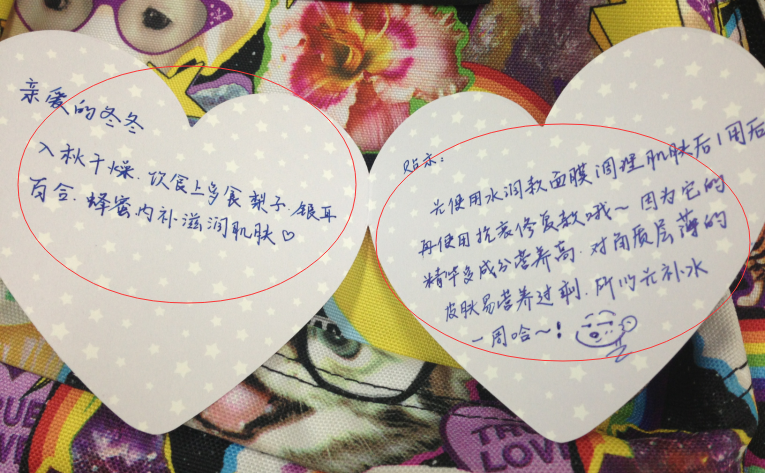 亲爱的冬冬
入秋干燥.饮食上多食梨子.银耳
百合.蜂蜜内补滋润肌肤♡
贴示：
先使用水润款面膜调理肌肤后1周后
再使用抗衰修复款哦～因为它的
精华及成分营养高.对角质层薄的
皮肤易营养过剩.所以先补水
一周哈～！
TR
LOVE